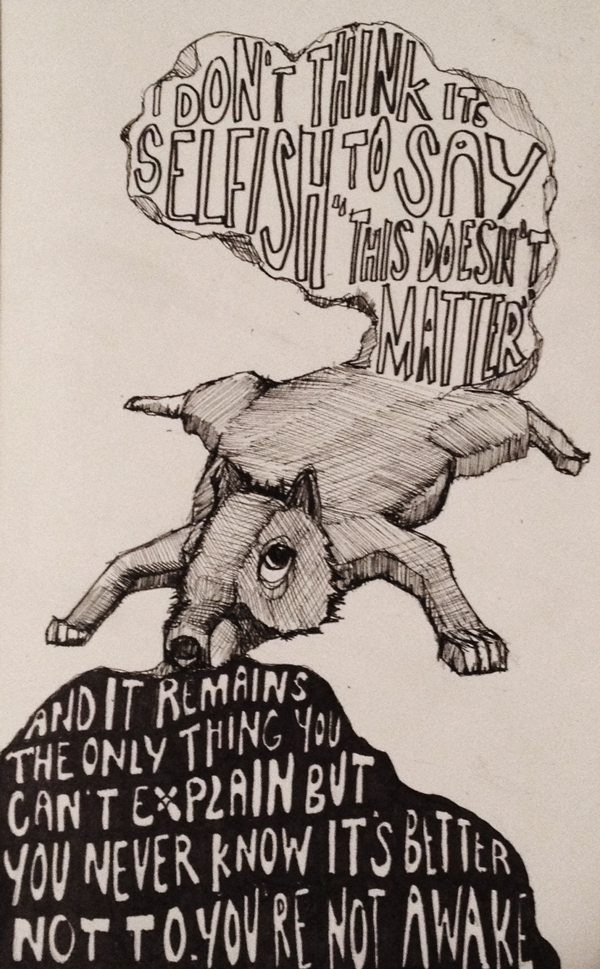 I DON'T THINK ITS
SELFISH TO SAY
"THIS DOESN'T
MATTER"
AND IT REMAINS
THE ONLY THING YOU
CAN'T EXPLAIN BUT
YOU NEVER KNOW IT'S BETTER
NOT TO. YOU'RE NOT AWAKE